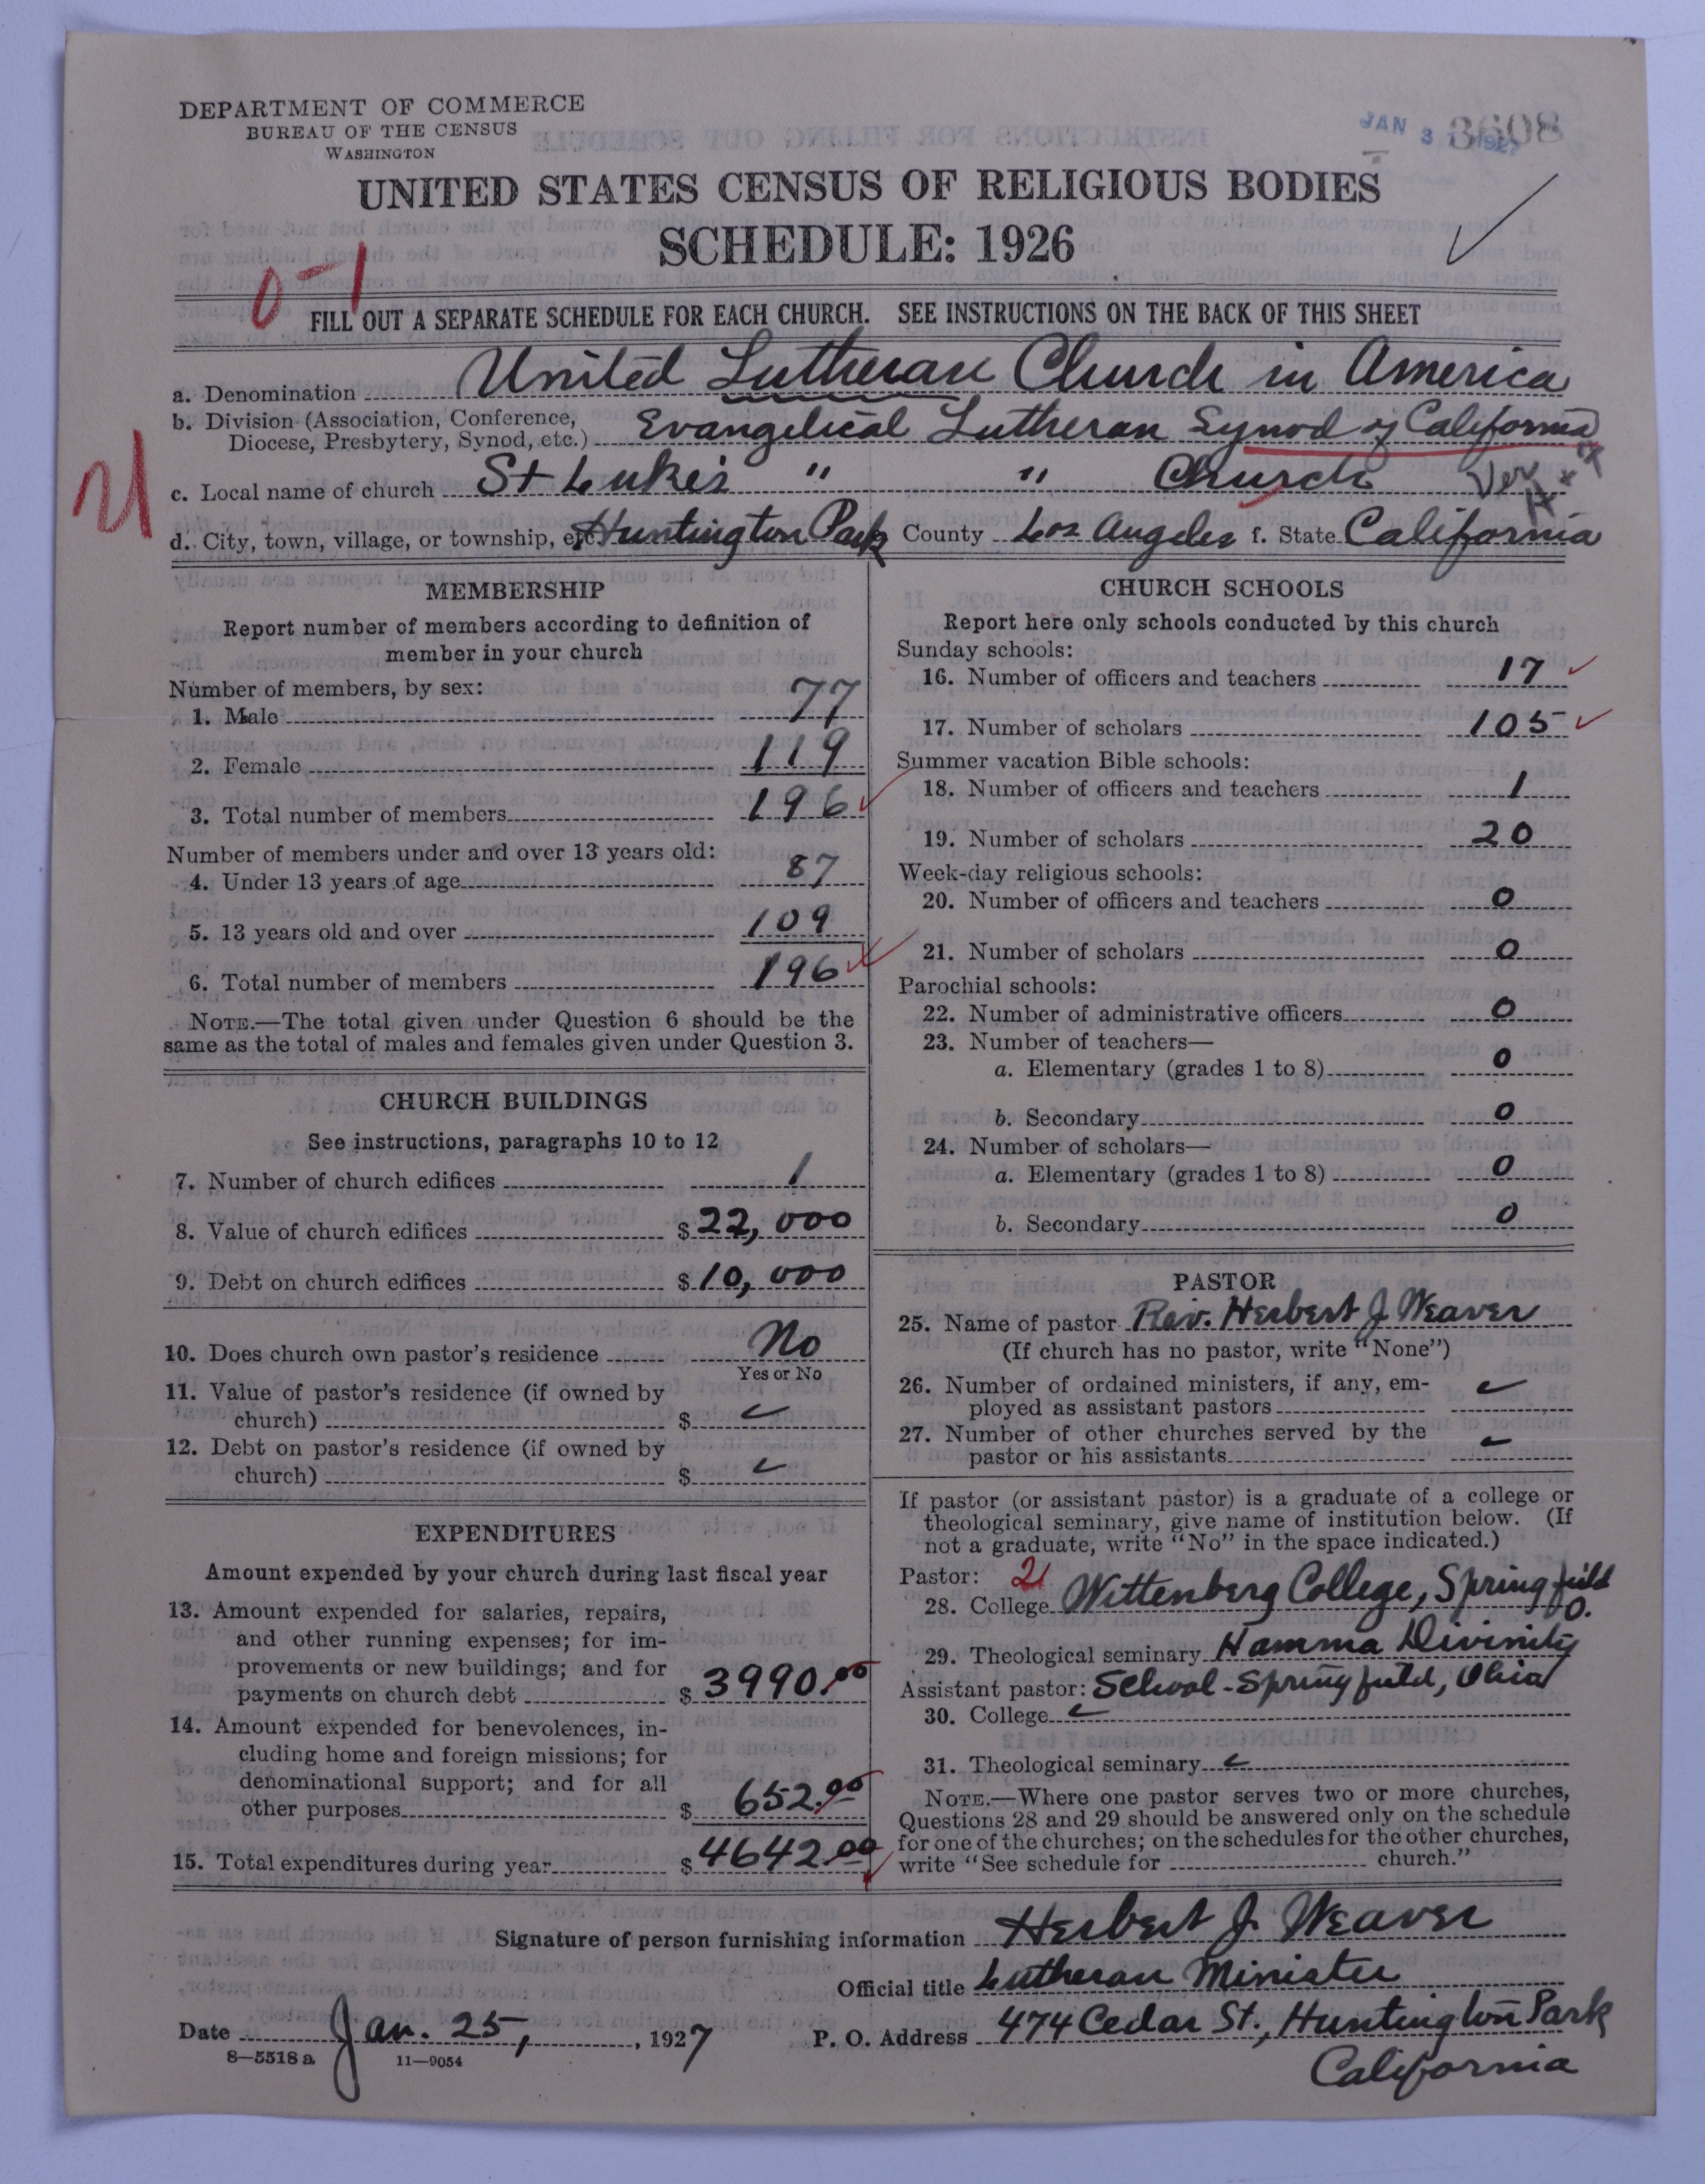 DEPARTMENT OF COMMERCE
BUREAU OF THE CENSUS
WASHINGTON
JAN 3 1927
3608
UNITED STATES CENSUS OF RELIGIOUS BODIES
SCHEDULE: 1926
0-1
FILL OUT A SEPARATE SCHEDULE FOR EACH CHURCH. SEE INSTRUCTIONS ON THE BACK OF THIS SHEET
a. Denomination United Lutheran Church in America
b. Division (Association, Conference,
Diocese, Presbytery, Synod, etc.) Evangelical Lutheran Synod of California
21
c. Local name of church St Luke's " " Church
d. City, town, village, or township, etc. Huntington Park County Los Angeles f. State California
MEMBERSHIP
Report number of members according to definition of
member in your church
Number of members, by sex:
1. Male 77
2. Female 119
3. Total number of members 196
Number of members under and over 13 years old:
4. Under 13 years of age 87
5. 13 years old and over 109
6. Total number of members 196
NOTE.—The total given under Question 6 should be the
same as the total of males and females given under Question 3.
CHURCH BUILDINGS
See instructions, paragraphs 10 to 12
7. Number of church edifices 1
8. Value of church edifices $22,000
9. Debt on church edifices $10,000
10. Does church own pastor's residence No
Yes or No
11. Value of pastor's residence (if owned by
church) $
12. Debt on pastor's residence (if owned by
church) $
EXPENDITURES
Amount expended by your church during last fiscal year
13. Amount expended for salaries, repairs,
and other running expenses; for im-
provements or new buildings; and for
payments on church debt $3990.00
14. Amount expended for benevolences, in-
cluding home and foreign missions; for
denominational support; and for all
other purposes $652.00
15. Total expenditures during year $4642.00
CHURCH SCHOOLS
Report here only schools conducted by this church
Sunday schools:
16. Number of officers and teachers 17
17. Number of scholars 105
Summer vacation Bible schools:
18. Number of officers and teachers 1
19. Number of scholars 20
Week-day religious schools:
20. Number of officers and teachers 0
21. Number of scholars 0
Parochial schools:
22. Number of administrative officers 0
23. Number of teachers—
a. Elementary (grades 1 to 8) 0
b. Secondary 0
24. Number of scholars—
a. Elementary (grades 1 to 8) 0
b. Secondary 0
PASTOR
25. Name of pastor Rev. Herbert J Weaver
(If church has no pastor, write "None")
26. Number of ordained ministers, if any, em-
ployed as assistant pastors
27. Number of other churches served by the
pastor or his assistants
If pastor (or assistant pastor) is a graduate of a college or
theological seminary, give name of institution below. (If
not a graduate, write "No" in the space indicated.)
Pastor: 21
28. College Wittenberg College, Springfield O.
29. Theological seminary Hamma Divinity
Assistant pastor: School - Springfield, Ohio
30. College
31. Theological seminary
NOTE.—Where one pastor serves two or more churches,
Questions 28 and 29 should be answered only on the schedule
for one of the churches; on the schedules for the other churches,
write "See schedule for church."
Signature of person furnishing information Herbert J. Weaver
Official title Lutheran Minister
Date Jan. 25, 1927 P. O. Address 474 Cedar St., Huntington Park
California
8—5518 a 11—9054